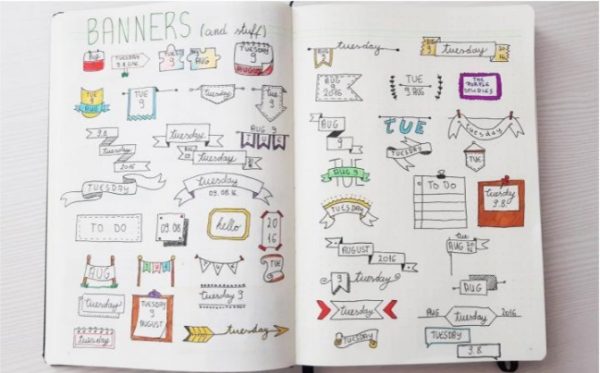 BANNERS (and stuff)
TUESDAY
9.8.2016
TUE
9
AUG
TUESDAY
9
AUGUST
TUE
9
AUG
TUE
9
tuesday
TUE
9
9.8.
tuesday
2016
tuesday
tuesday
AUG 9
TUESDAY
tuesday
09.08.16
TO DO
09.08
hello
20
16
AUG
TUE
tuesday
tuesday 9
TUESDAY
9
AUGUST
tuesday
tuesday
9
tuesday
9
tuesday
AUG
9
2016
TUE
9 AUG
THE
PURPLE
TUE
tuesday
AUG
9
tuesday
TUESDAY
TUE
TUE
AUG 9
TO DO
tuesday
9.8.
TUESDAY
AUGUST
2016
tue
AUG
9
tuesday
AUG
tuesday
AUG
tuesday
2016
TUESDAY
TUESDAY
9.8